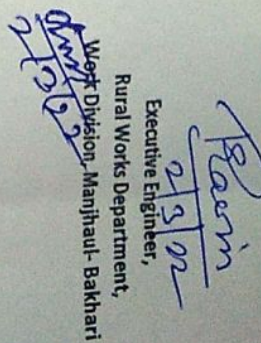 2/3/22
Executive Engineer,
Rural Works Department,
Work Division, Manjhaul- Bakhari
2/3/22